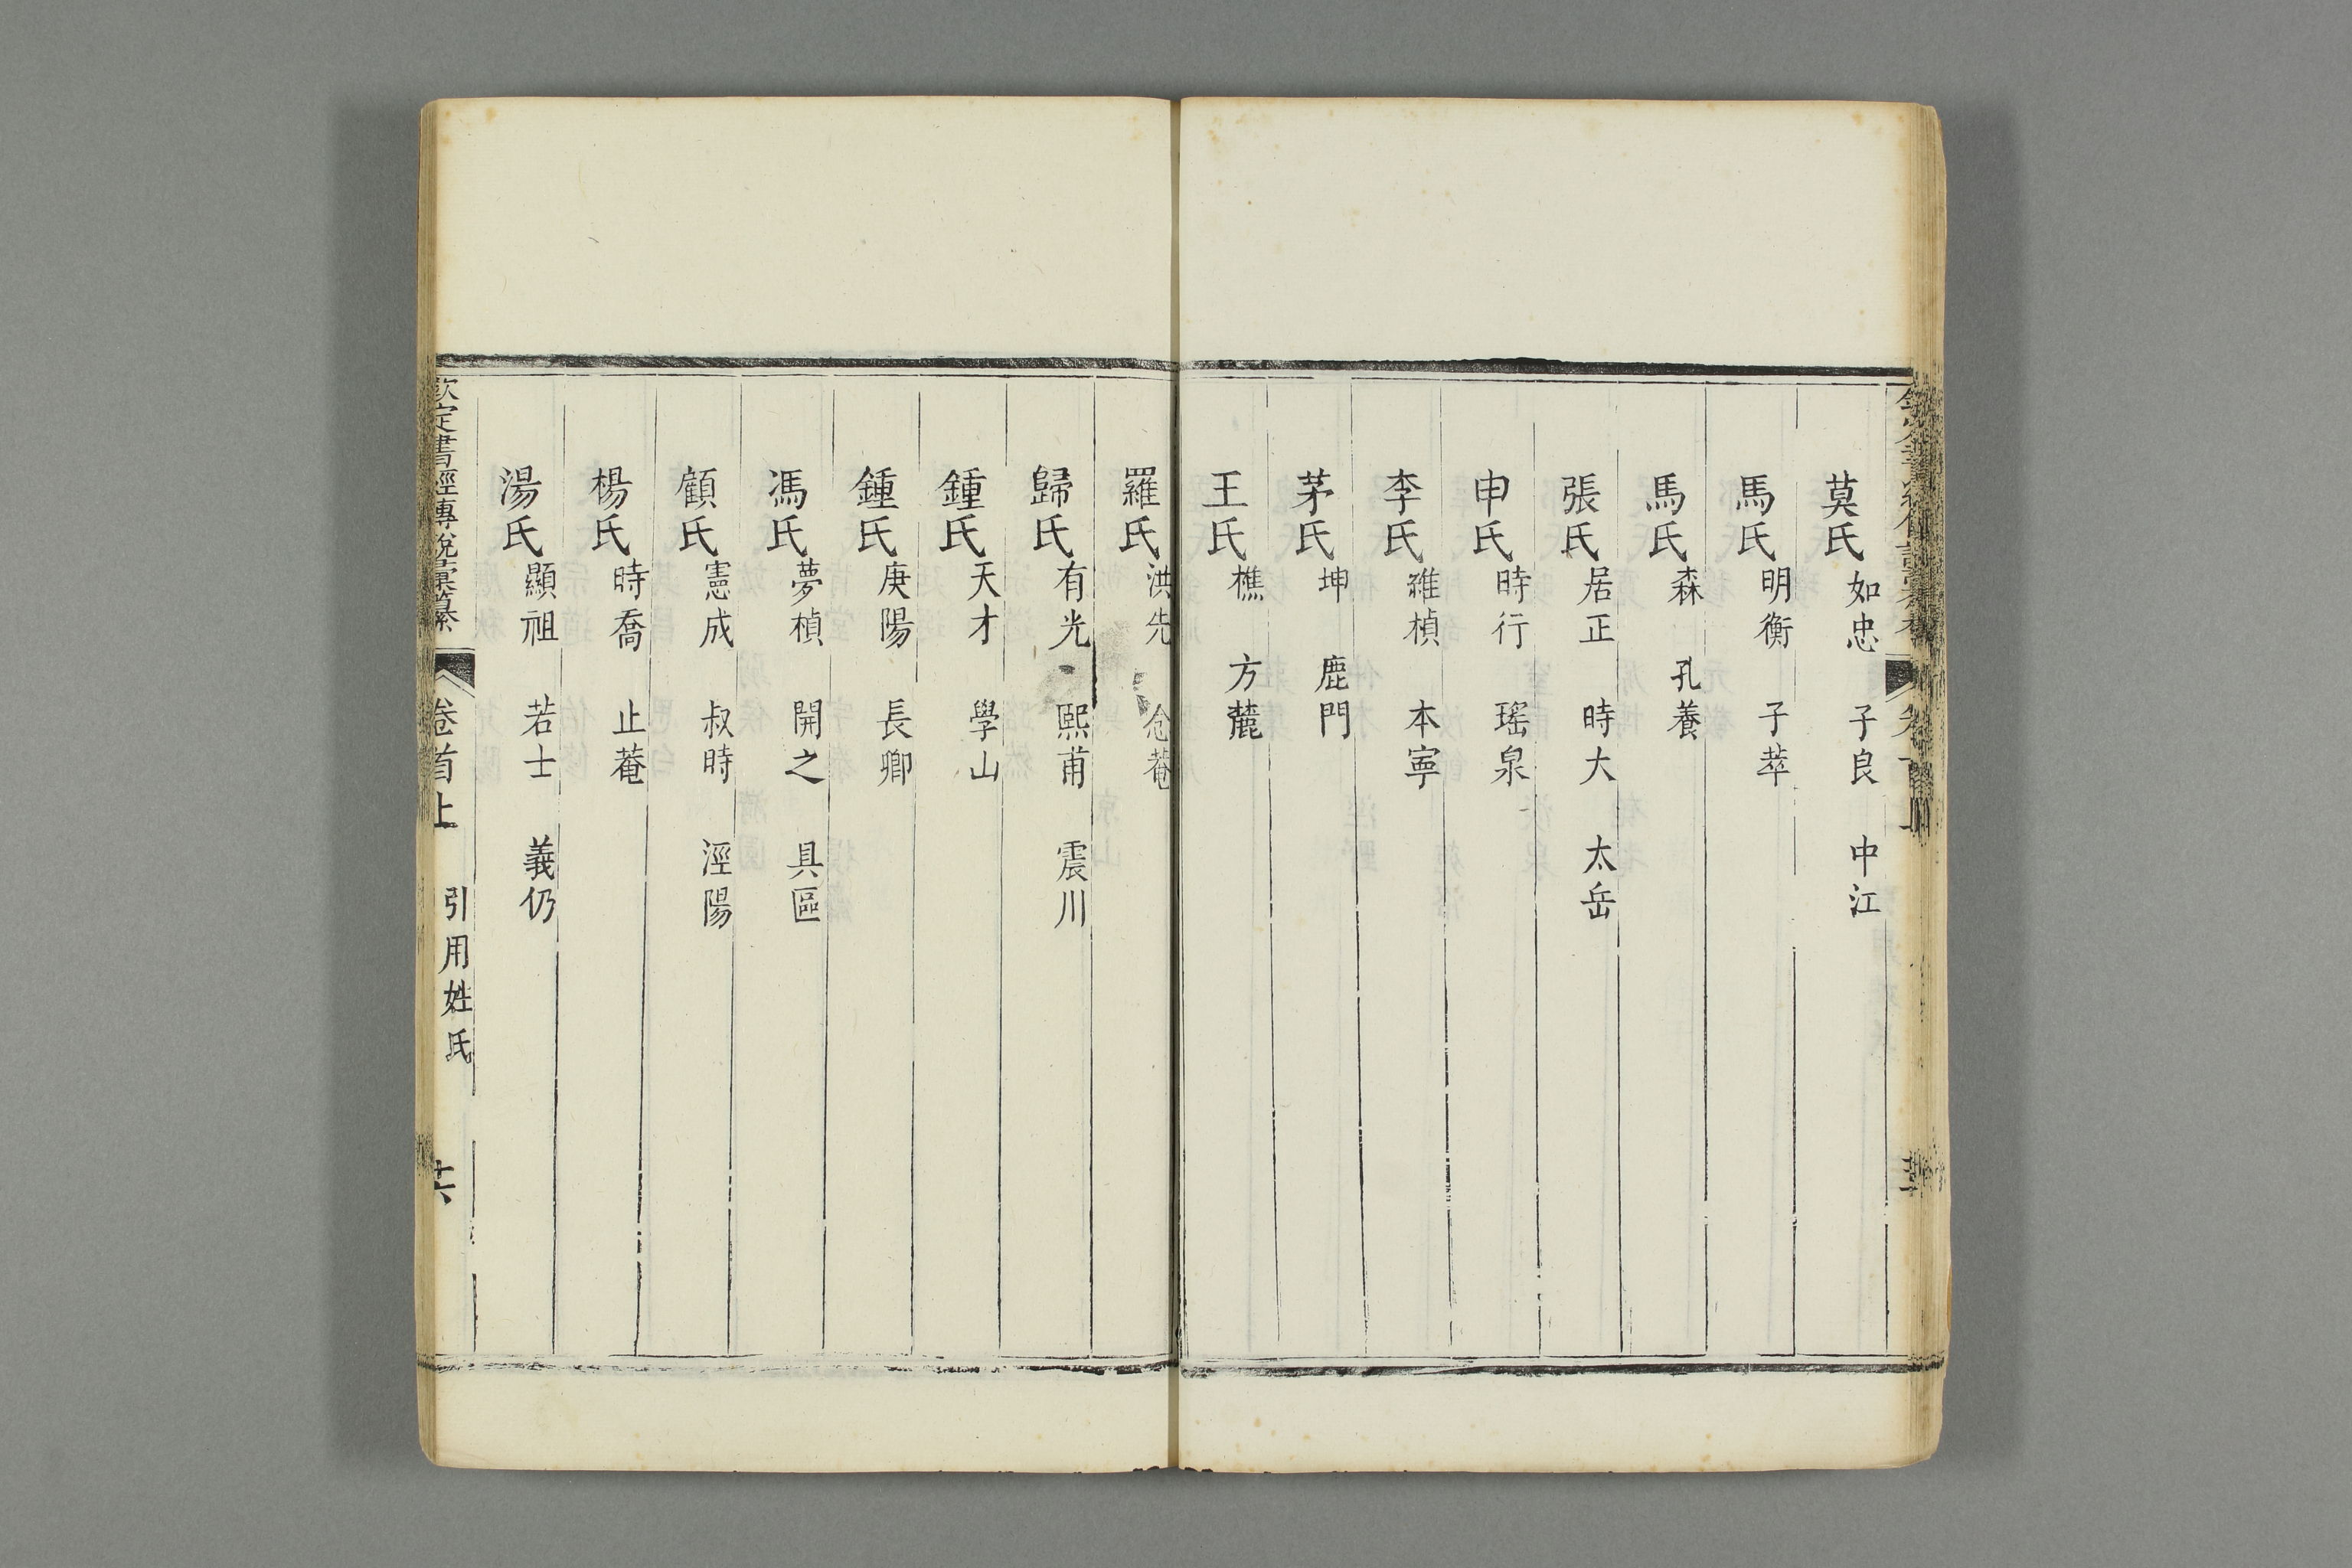 莫氏如忠 子良 中江
馬氏明衡 子莘
馬氏森 孔養
張氏居正 時大 太岳
申氏時行 瑤泉
李氏維楨 本寧
茅氏坤 鹿門
王氏樵 方麓
羅氏洪先 念菴
歸氏有光 熙甫 震川
鍾氏天才 學山
鍾氏庚陽 長卿
馮氏夢楨 開之 具區
顧氏憲成 叔時 涇陽
楊氏時喬 止菴
湯氏顯祖 若士 義仍
欽定書經傳說彙纂 卷首上 引用姓氏 共